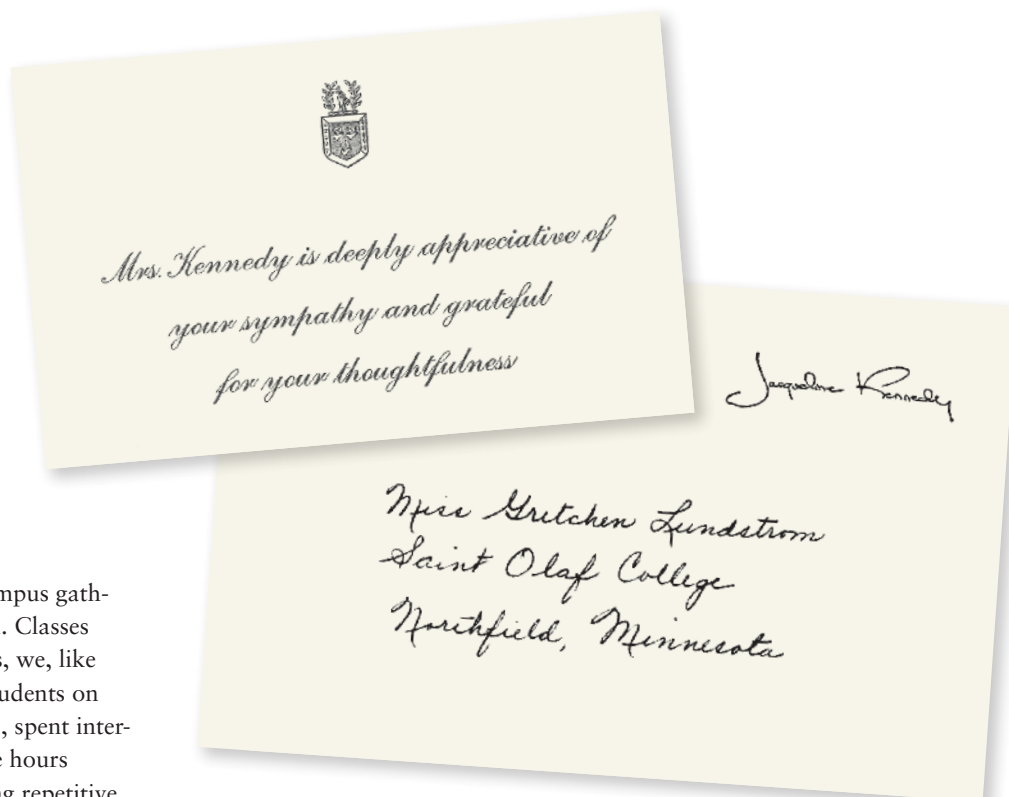 Mrs. Kennedy is deeply appreciative of
your sympathy and grateful
for your thoughtfulness
Jacqueline Kennedy
Miss Gretchen Lundstrom
Saint Olaf College
Northfield, Minnesota
mpus gath-
. Classes
s, we, like
udents on
, spent inter-
e hours
ng repetitive